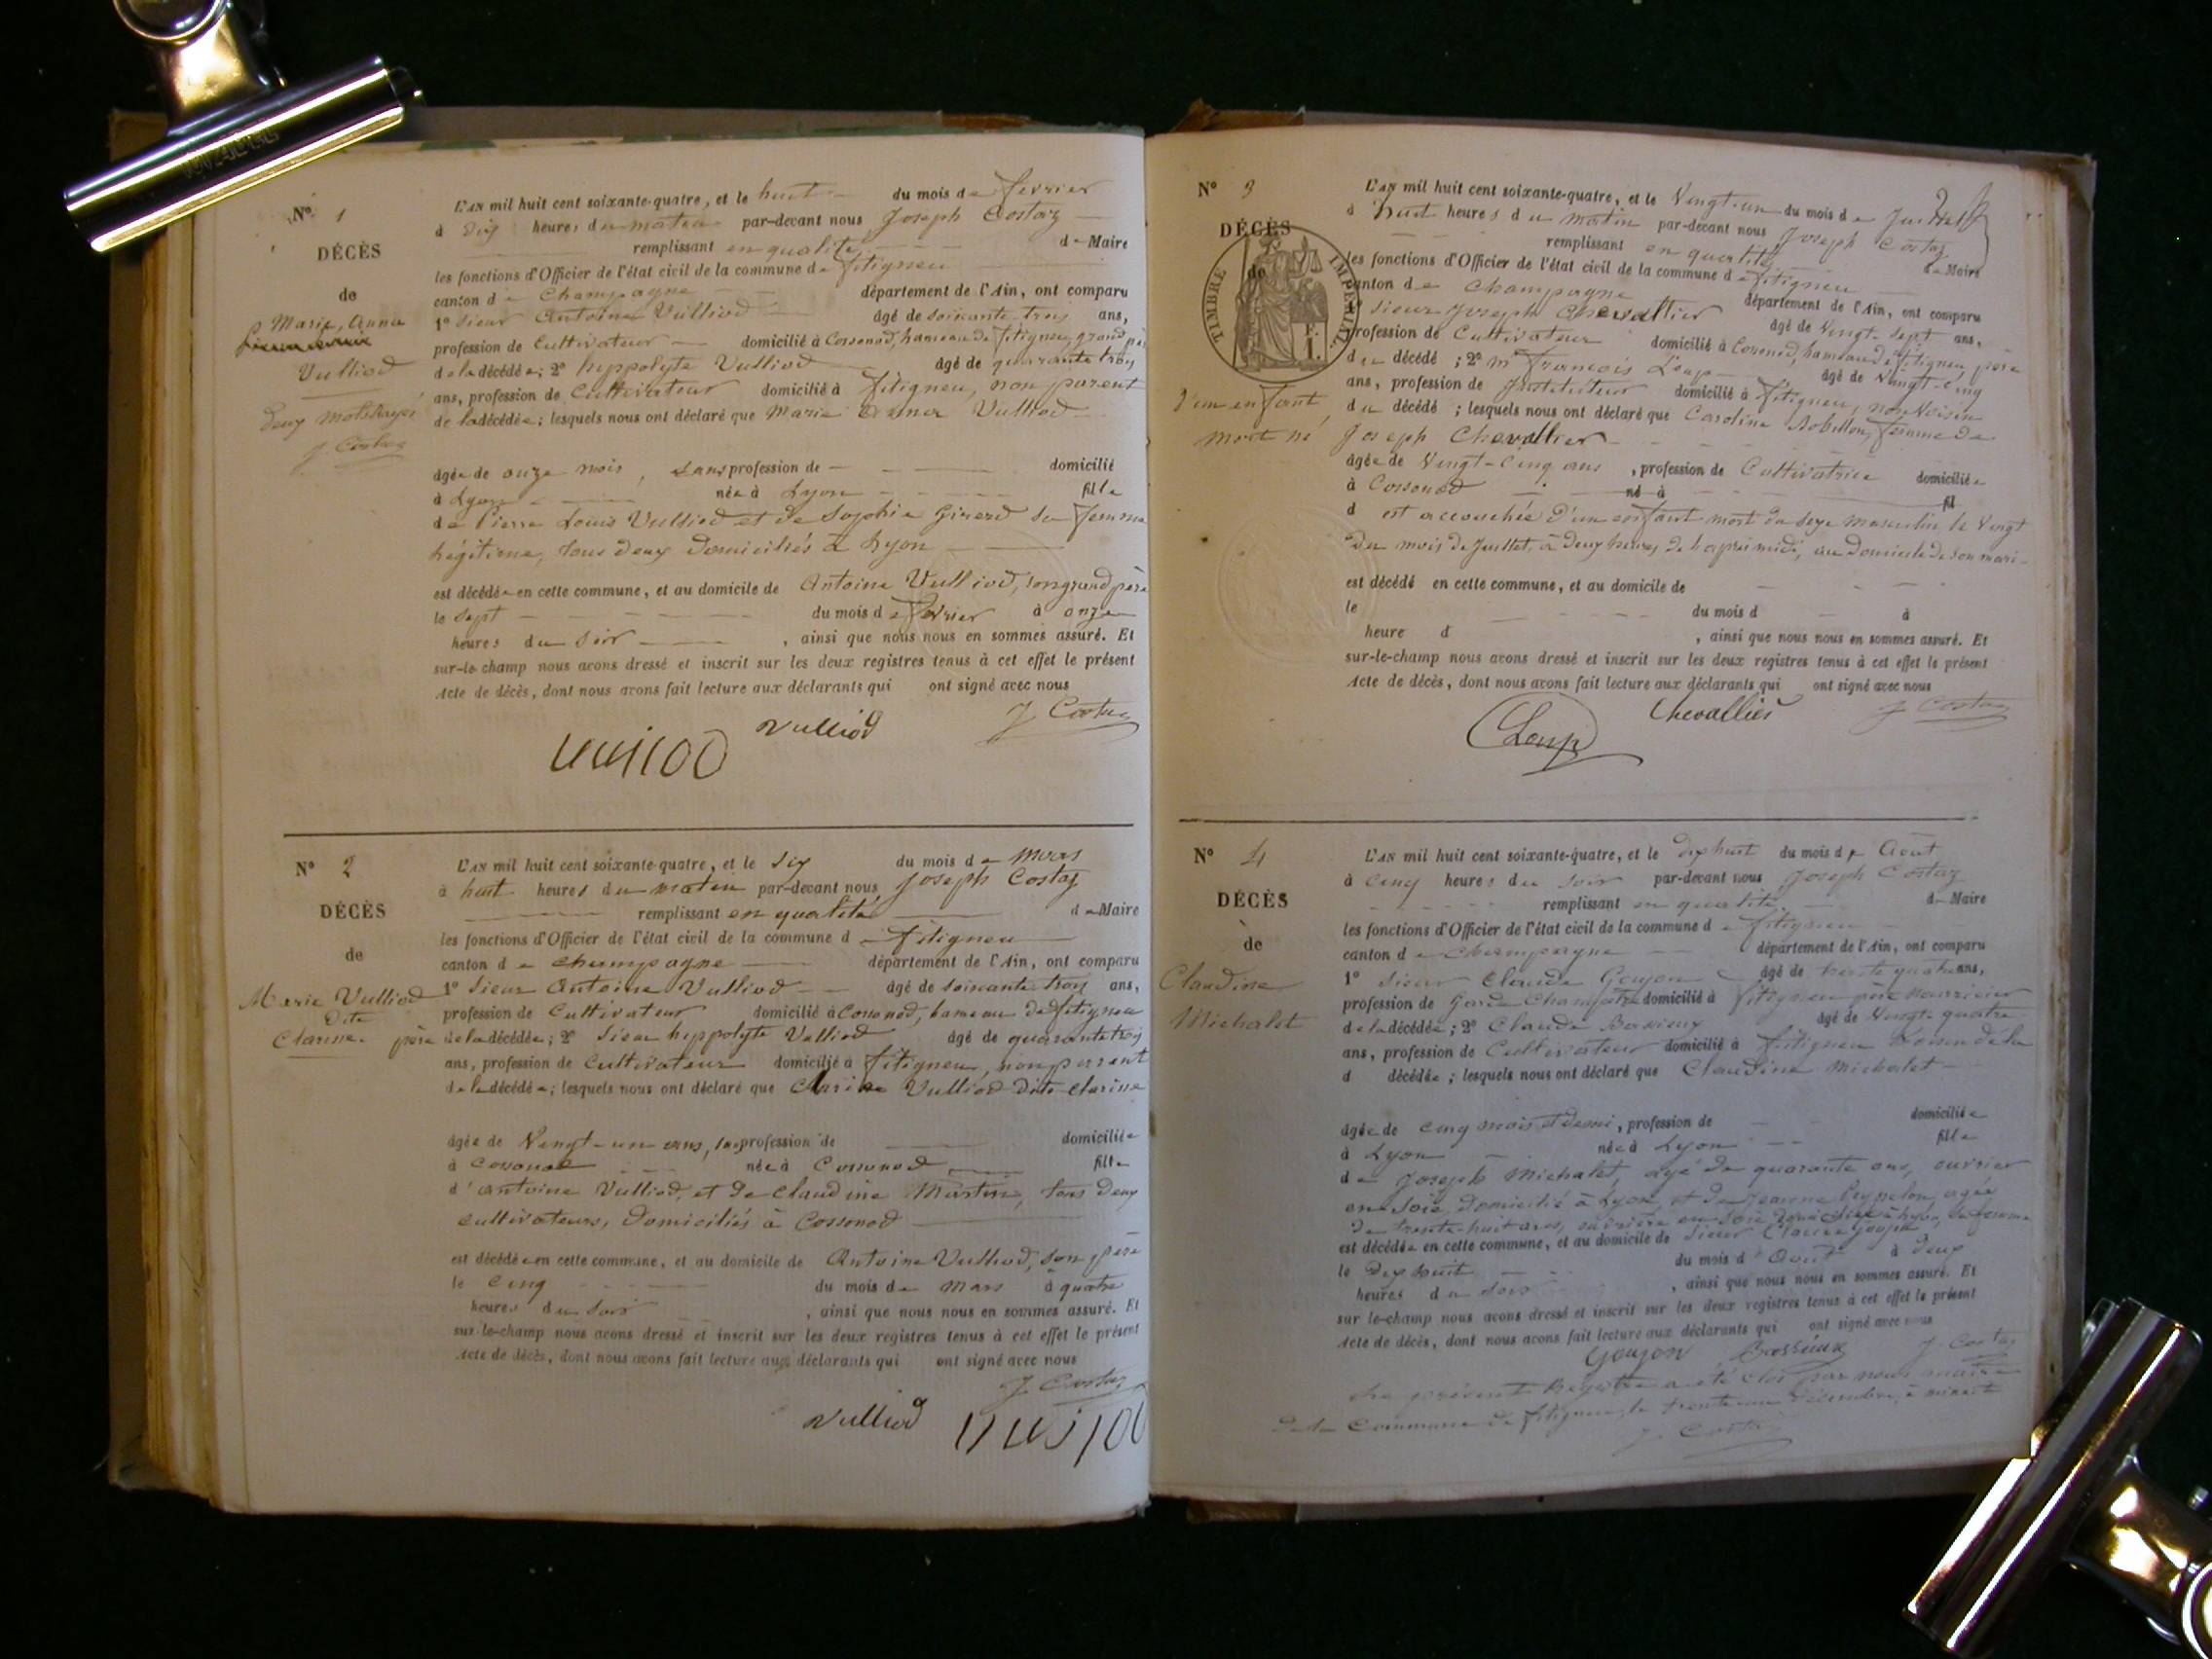 N° 1
DÉCÈS
de
Marie, Anna
Vulliod
deux mots rayés
J. Costaz
L'AN mil huit cent soixante-quatre, et le huit du mois de février
à dix heures du matin par-devant nous Joseph Costaz
remplissant en qualité de Maire
les fonctions d'Officier de l'état civil de la commune de fitigneu
canton de Champagne département de l'Ain, ont comparu
1° Sieur Antoine Vulliod âgé de soixante trois ans,
profession de Cultivateur domicilié à Cossonod, hameau de fitigneu, grand père
de la décédée; 2° hyppolyte Vulliod âgé de quarante trois
ans, profession de Cultivateur domicilié à fitigneu, non parent
de la décédée; lesquels nous ont déclaré que Marie Anna Vulliod
âgée de onze mois, sans profession de domicilié
à Lyon née à Lyon fille
de Pierre Louis Vulliod et de Sophie Girerd sa femme
légitime, tous deux domiciliés à Lyon
est décédée en cette commune, et au domicile de Antoine Vulliod, son grand père
le sept du mois de février à onze
heures du soir, ainsi que nous nous en sommes assuré. Et
sur-le-champ nous avons dressé et inscrit sur les deux registres tenus à cet effet le présent
Acte de décès, dont nous avons fait lecture aux déclarants qui ont signé avec nous
J. Costaz
Vulliod
N° 2
DÉCÈS
de
Marie Vulliod
dite
Clarine.
L'AN mil huit cent soixante-quatre, et le six du mois de Mars
à huit heures du matin par-devant nous Joseph Costaz
remplissant en qualité de Maire
les fonctions d'Officier de l'état civil de la commune de fitigneu
canton de champagne département de l'Ain, ont comparu
1° Sieur Antoine Vulliod âgé de soixante trois ans,
profession de Cultivateur domicilié à Cossonod, hameau de fitigneu
père de la décédée; 2° Sieur hyppolyte Vulliod âgé de quarante trois
ans, profession de Cultivateur domicilié à fitigneu, non parent
de la décédée; lesquels nous ont déclaré que Vulliod dite clarine
âgée de Vingt-un ans, profession de domiciliée
à Cossonod née à Cossonod fille
d'antoine Vulliod, et de claudine Martin, tous deux
cultivateurs, domiciliés à Cossonod
est décédée en cette commune, et au domicile de Antoine Vulliod, son père
le cinq du mois de Mars à quatre
heures du soir, ainsi que nous nous en sommes assuré. Et
sur-le-champ nous avons dressé et inscrit sur les deux registres tenus à cet effet le présent
Acte de décès, dont nous avons fait lecture aux déclarants qui ont signé avec nous
J. Costaz
Vulliod
N° 3
DÉCÈS
de
TIMBRE IMPÉRIAL
d'un enfant
mort né
L'AN mil huit cent soixante-quatre, et le Vingt-un du mois de Juillet
à huit heures du matin par-devant nous Joseph Costaz
remplissant en qualité de Maire
les fonctions d'Officier de l'état civil de la commune de fitigneu
canton de Champagne département de l'Ain, ont comparu
Sieur Joseph Chevallier âgé de Vingt-sept ans,
profession de Cultivateur domicilié à Cossonod, hameau de fitigneu, père
du décédé; 2° Mr françois Loup âgé de Vingt-cinq
ans, profession de Instituteur domicilié à fitigneu, non Voisin
du décédé; lesquels nous ont déclaré que Caroline Robillon, femme de
Joseph Chevallier
âgée de Vingt-cinq ans, profession de Cultivatrice domiciliée
à Cossonod né à fil
d est accouchée d'un enfant mort du sexe masculin le Vingt
du mois de Juillet, à deux heures de l'après midi, au domicile de son mari
est décédé en cette commune, et au domicile de
le du mois d à
heure d , ainsi que nous nous en sommes assuré. Et
sur-le-champ nous avons dressé et inscrit sur les deux registres tenus à cet effet le présent
Acte de décès, dont nous avons fait lecture aux déclarants qui ont signé avec nous
Loup Chevallier J. Costaz
N° 4
DÉCÈS
de
Claudine
Michalet
L'AN mil huit cent soixante-quatre, et le dix huit du mois d'Août
à cinq heures du soir par-devant nous Joseph Costaz
remplissant en qualité de Maire
les fonctions d'Officier de l'état civil de la commune de fitigneu
canton de Champagne département de l'Ain, ont comparu
1° Sieur Claude Goujon âgé de trente quatre ans,
profession de Garde Champêtre domicilié à fitigneu père nourricier
de la décédée; 2° Claude Bossieux âgé de Vingt-quatre
ans, profession de Cultivateur domicilié à fitigneu Voisin de la
d décédée; lesquels nous ont déclaré que Claudine Michalet
âgée de cinq mois et demi, profession de domiciliée
à Lyon née à Lyon fille
de Joseph Michalet, âgé de quarante ans, ouvrier
en soie, domicilié à Lyon, et de Jeanne Peynelon, agée
de trente-huit ans, ouvrière en soie domiciliée à Lyon, sa femme
est décédée en cette commune, et au domicile de Sieur Claude Goujon
le Dix huit du mois d'Août à deux
heures du soir, ainsi que nous nous en sommes assuré. Et
sur le-champ nous avons dressé et inscrit sur les deux registres tenus à cet effet le présent
Acte de décès, dont nous avons fait lecture aux déclarants qui ont signé avec nous
Goujon Bossieux J. Costaz
Le présent Registre a été clos par nous maire
de la Commune de fitigneu, le trente un décembre, à minuit
J. Costaz